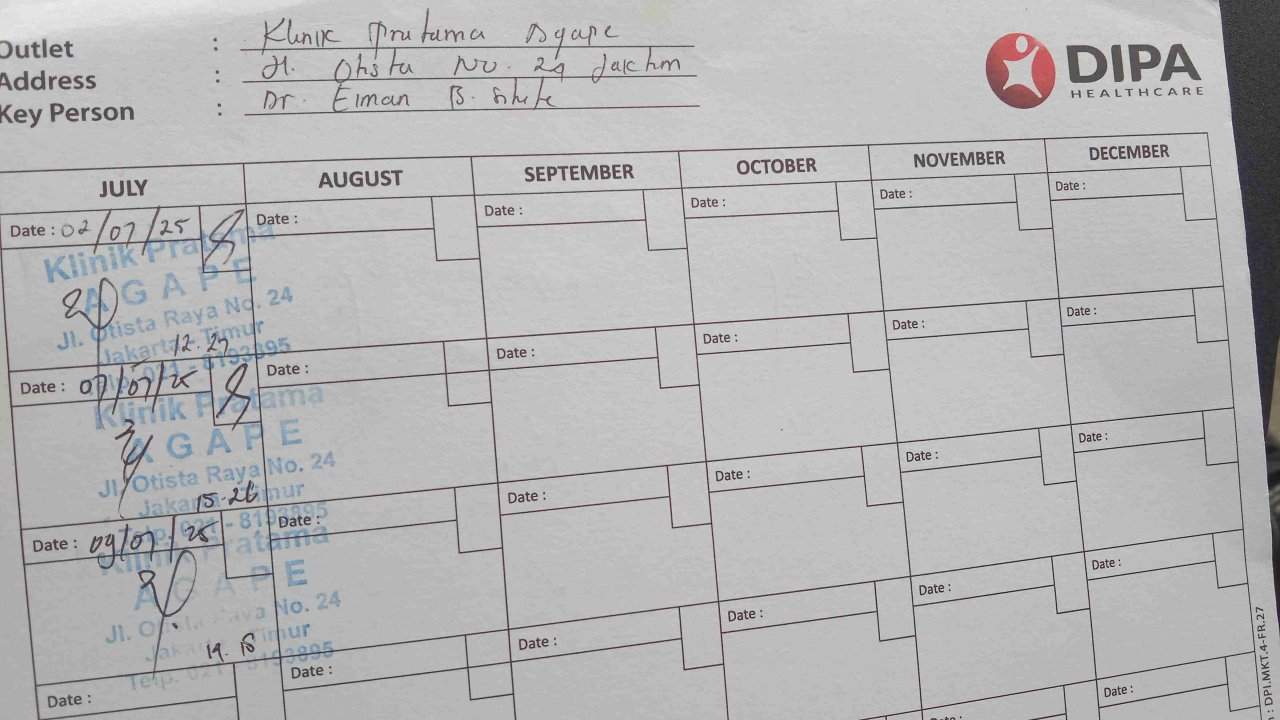 Outlet : Klinik Pratama Agape
Address : Jl. Otista No. 24 Jaktim
Key Person : Dr. Eiman B.
DIPA
HEALTHCARE
JULY AUGUST SEPTEMBER OCTOBER NOVEMBER DECEMBER
Date : 02/07/25 Date : Date : Date : Date : Date :
Klinik Pratama
AGAPE
Jl. Otista Raya No. 24
Jakarta Timur
Telp. 021 - 8193895
12.27
Date : 07/07/25 Date : Date : Date : Date : Date :
Klinik Pratama
AGAPE
Jl. Otista Raya No. 24
Jakarta Timur
15.26
Telp. 021 - 8193895
Date : 09/07/25 Date : Date : Date : Date : Date :
Klinik Pratama
AGAPE
Jl. Otista Raya No. 24
Jakarta Timur
19.18
Telp. 021 - 8193895
Date : Date : Date : Date : Date : Date :
Date :
: DPI.MKT.4-FR.27